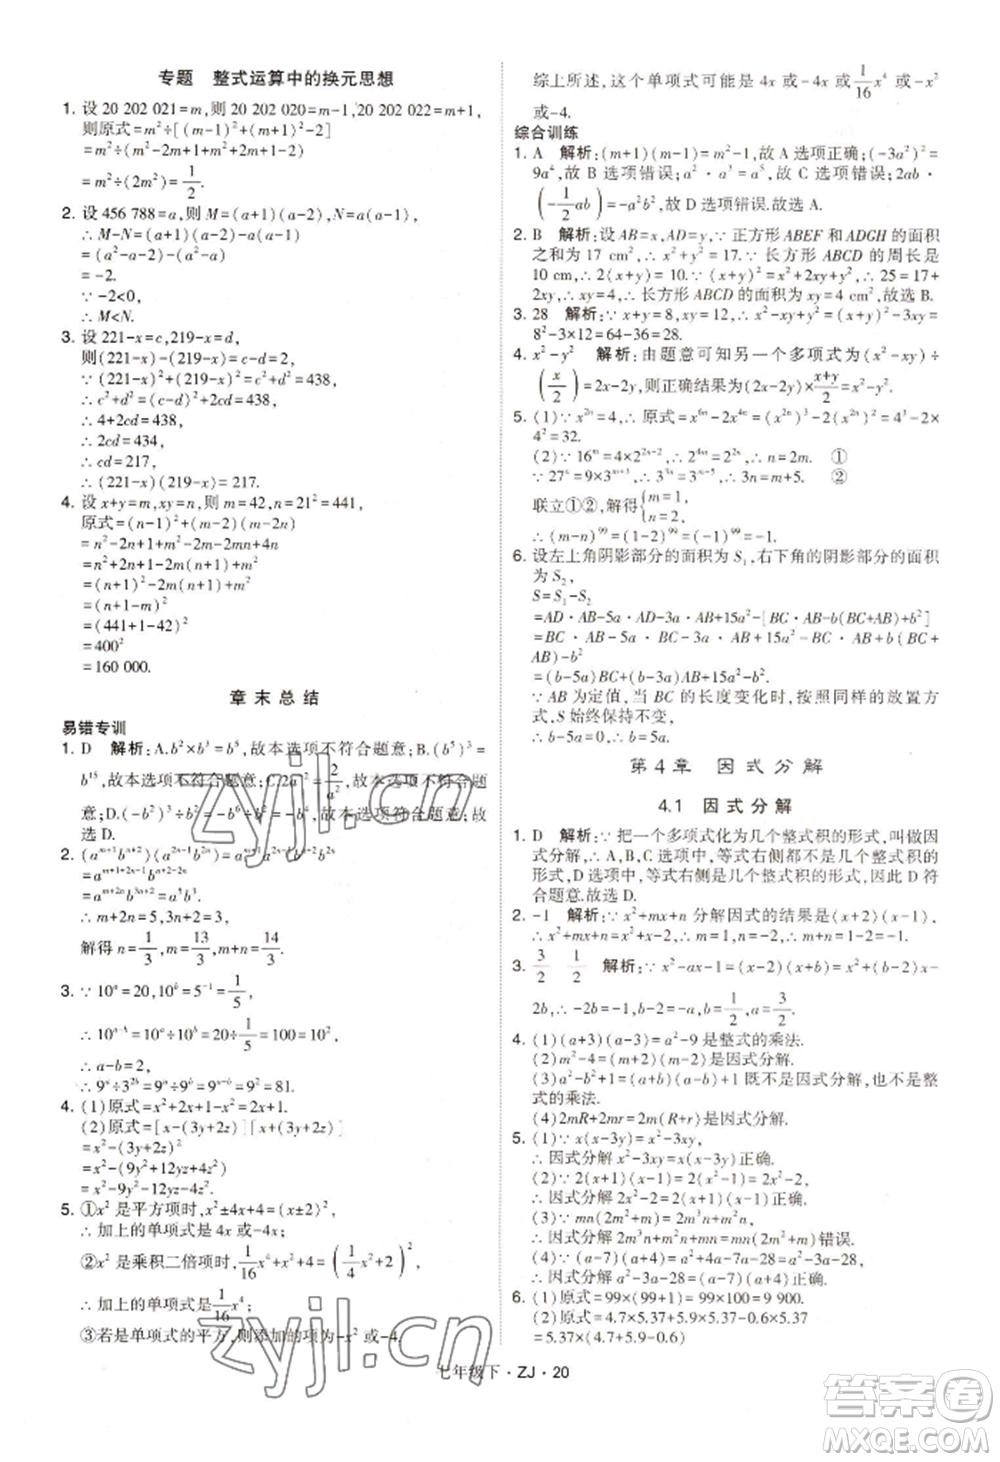 专题　整式运算中的换元思想
1. 设 20 202 021=m,则 20 202 020=m-1,20 202 022=m+1,
则原式=m²÷[(m-1)²+(m+1)²-2]
=m²÷(m²-2m+1+m²+2m+1-2)
=m²÷(2m²)=1/2.
2. 设 456 788=a,则 M=(a+1)(a-2),N=a(a-1),
∴ M-N=(a+1)(a-2)-a(a-1)
=(a²-a-2)-(a²-a)
=-2.
∵ -2<0,
∴ M<N.
3. 设 221-x=c,219-x=d,
则(221-x)-(219-x)=c-d=2.
∵ (221-x)²+(219-x)²=c²+d²=438,
∴ c²+d²=(c-d)²+2cd=438,
∴ 4+2cd=438,
∴ 2cd=434,
∴ cd=217,
∴ (221-x)(219-x)=217.
4. 设 x+y=m,xy=n,则 m=42,n=21²=441,
原式=(n-1)²+(m-2)(m-2n)
=n²-2n+1+m²-2mn-2m+4n
=n²+2n+1+m²-2mn-2m
=(n+1)²-2m(n+1)+m²
=(n+1-m)²
=(441+1-42)²
=400²
=160 000.
章末总结
易错专训
1. D　解析:A.b²×b³=b⁵,故本选项不符合题意;B.(b⁵)³=
b¹⁵,故本选项不符合题意;C.2a⁻²=2/a²,故本选项不符合题
意;D.(-b²)³÷b²=-b⁶÷b²=-b⁴,故本选项符合题意.故
选 D.
2. (a^{m+1}b^{n+2})(a^{2n-1}b^{2n})
=a^{m+1+2n-1}b^{n+2+2n}
=a^{m+2n}b^{3n+2}=a⁵b³.
∴ m+2n=5,3n+2=3,
解得 n=1/3,m=13/3,∴ m+n=14/3.
3. ∵ 10^a=20,10^b=5⁻¹=1/5,
∴ 10^{a-b}=10^a÷10^b=20÷1/5=100=10²,
∴ a-b=2,
∴ 9^a÷3^{2b}=9^a÷9^b=9^{a-b}=9²=81.
4. (1)原式=x²+2x-x²+1=2x+1.
(2)原式=[x-(3y+2z)][x+(3y+2z)]
=x²-(3y+2z)²
=x²-(9y²+12yz+4z²)
=x²-9y²-12yz-4z².
5. ①x² 是平方项时,x²±4x+4=(x±2)²,
∴ 加上的单项式是 4x 或-4x;
②x² 是乘积二倍项时,1/16x⁴+x²+4=(1/4x²+2)²,
∴ 加上的单项式是1/16x⁴;
③若是单项式的平方,则添加的项为-x² 或-4.
综上所述,这个单项式可能是 4x 或-4x 或1/16x⁴ 或-x²
或-4.
综合训练
1. A　解析:(m+1)(m-1)=m²-1,故 A 选项正确;(-3a²)²=
9a⁴,故 B 选项错误;a²·a³=a⁵,故 C 选项错误;2ab·
(-1/2ab)=-a²b²,故 D 选项错误.故选 A.
2. B　解析:设 AB=x,AD=y,∵ 正方形 ABEF 和 ADGH 的面积
之和为 17 cm²,∴ x²+y²=17.∵ 长方形 ABCD 的周长是
10 cm,∴ 2(x+y)=10.∵ (x+y)²=x²+2xy+y²,∴ 25=17+
2xy,∴ xy=4,∴ 长方形 ABCD 的面积为 xy=4 cm².故选 B.
3. 28　解析:∵ x+y=8,xy=12,∴ x²-xy+y²=(x+y)²-3xy=
8²-3×12=64-36=28.
4. x²-y²　解析:由题意可知另一个多项式为(x²-xy)÷
(x/2)=2x-2y,则正确结果为(2x-2y)×(x+y)/2=x²-y².
5. (1)∵ x^{2n}=4,∴ 原式=x^{6n}-2x^{4n}=(x^{2n})³-2(x^{2n})²=4³-2×
4²=32.
(2)∵ 16^m=4×2^{2n-2},∴ 2^{4m}=2^{2n},∴ n=2m.　①
∵ 27^n=9×3^{m+3},∴ 3^{3n}=3^{m+5},∴ 3n=m+5.　②
联立①②,解得{m=1,
n=2.
∴ (m-n)⁹⁹=(1-2)⁹⁹=(-1)⁹⁹=-1.
6. 设左上角阴影部分的面积为 S₁,右下角的阴影部分的面积
为 S₂,
S=S₁-S₂
=AD·AB-5a·AD-3a·AB+15a²-[BC·AB-b(BC+AB)+b²]
=BC·AB-5a·BC-3a·AB+15a²-BC·AB+b(BC+
AB)-b²
=(b-5a)BC+(b-3a)AB+15a²-b².
∵ AB 为定值,当 BC 的长度变化时,按照同样的放置方
式,S 始终保持不变,
∴ b-5a=0,∴ b=5a.
第 4 章　因式分解
4.1　因式分解
1. D　解析:∵ 把一个多项式化为几个整式积的形式,叫做因
式分解,∴ A,B,C 选项中,等式右侧都不是几个整式积的
形式,D 选项中,等式右侧是几个整式积的形式,故 D 符
合题意.故选 D.
2. -1　解析:∵ x²+mx+n 分解因式的结果是(x+2)(x-1),
∴ x²+mx+n=x²+x-2,∴ m=1,n=-2,∴ m+n=1-2=-1.
3. 3/2　1/2　解析:∵ x²-ax-1=(x-2)(x+b)=x²+(b-2)x-
2b,∴ -2b=-1,b-2=-a,b=1/2,a=3/2.
4. (1)(a+3)(a-3)=a²-9 是整式的乘法.
(2)m²-4=(m+2)(m-2)是因式分解.
(3)a²-b²+1=(a+b)(a-b)+1 既不是因式分解,也不是整
式的乘法.
(4)2mR+2mr=2m(R+r)是因式分解.
5. (1)∵ x(x-3y)=x²-3xy,
∴ 因式分解 x²-3xy=x(x-3y)正确.
(2)∵ 2xy(x-y)=2x²y-2xy²,
∴ 因式分解 2x²y-2xy²=2xy(x-y)正确.
(3)∵ mn(m²n-4)=m³n²-4mn,
∴ 因式分解 5m³n²-4mn=mn(m²n-4)错误.
(4)∵ (a-7)(a+4)=a²+4a-7a-28=a²-3a-28,
∴ 因式分解 a²-3a-28=(a-7)(a+4)正确.
6. (1)原式=99×(99+1)=99×100=9 900.
(2)原式=4.7×5.37+5.9×5.37-0.6×5.37
=5.37×(4.7+5.9-0.6)
七年级下·ZJ·20
zyjl.cn
zyjl.cn
答案圈
MXQE.COM